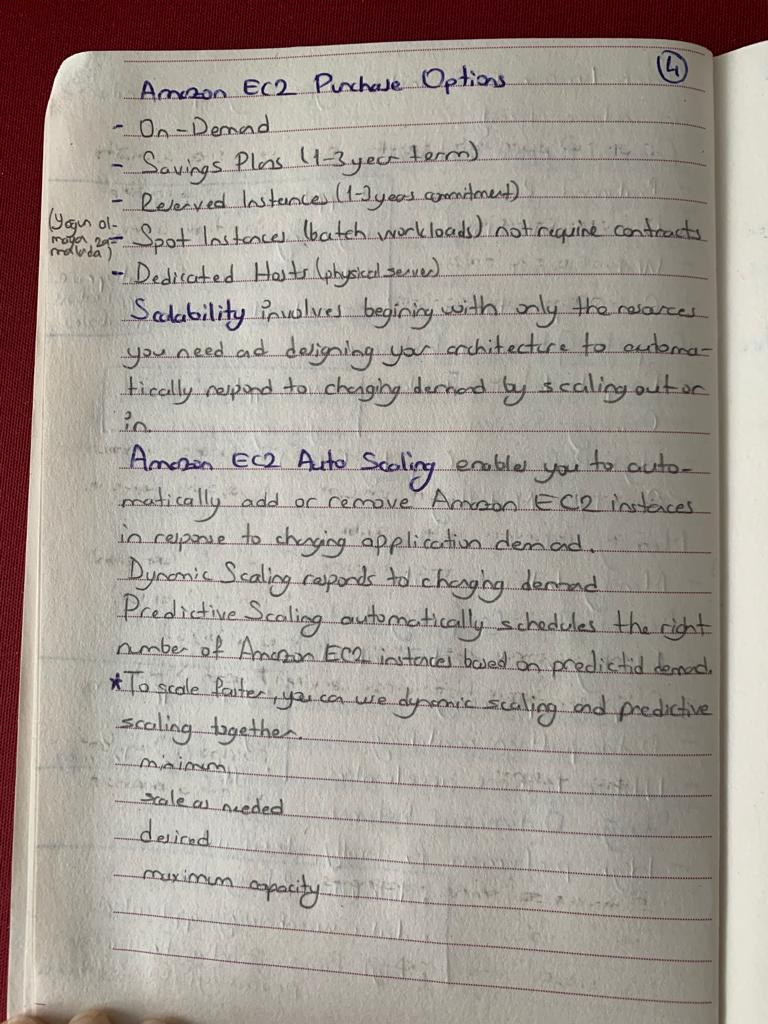 4
Amazon EC2 Purchase Options
- On-Demand
- Savings Plans (1-3 year term)
- Reserved Instances (1-3 years commitment)
(Yoğun ol-
mayan za-
manlarda)
- Spot Instances (batch workloads) not require contracts
- Dedicated Hosts (physical server)
Scalability involves begining with only the resources
you need and designing your architecture to automa-
tically respond to changing demand by scaling out or
in.
Amazon EC2 Auto Scaling enables you to auto-
matically add or remove Amazon EC2 instances
in response to changing application demand.
Dynamic Scaling responds to changing demand
Predictive Scaling automatically schedules the right
number of Amazon EC2 instances based on predictid demand.
*To scale faster, you can use dynamic scaling and predictive
scaling together.
minimum
scale as needed
desired
maximum capacity